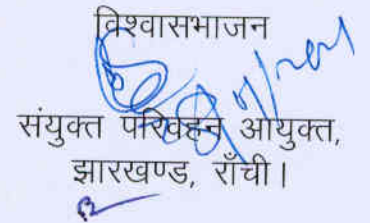 विश्वासभाजन
संयुक्त परिवहन आयुक्त,
झारखण्ड, राँची।